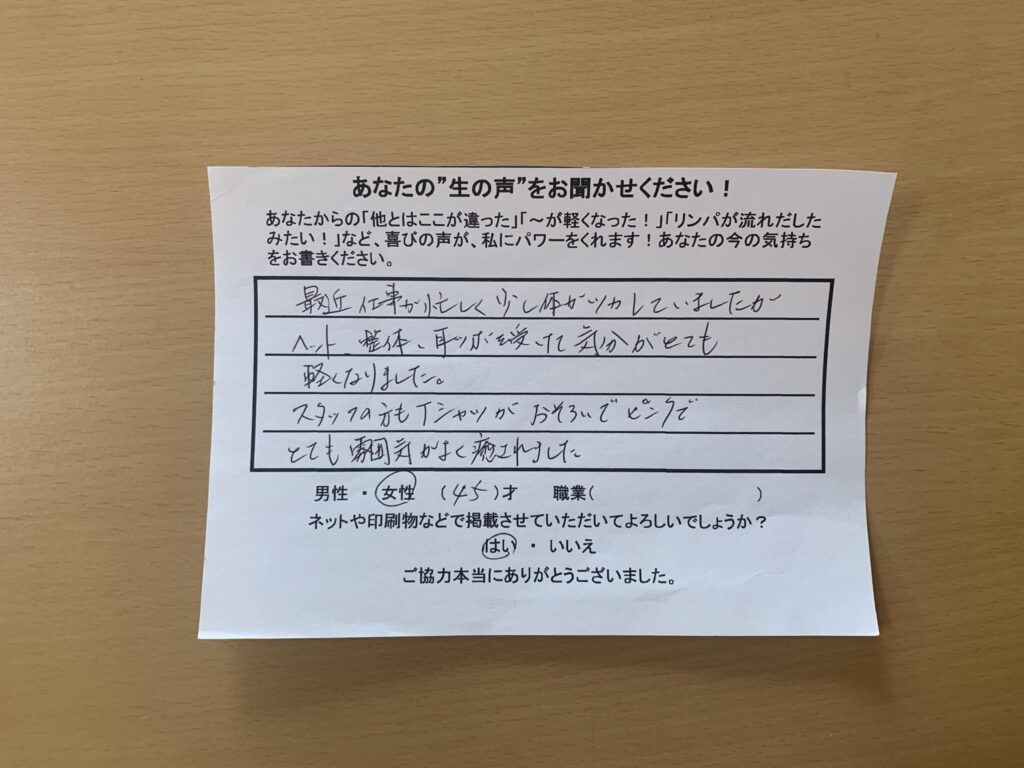 あなたの”生の声”をお聞かせください！
あなたからの「他とはここが違った」「～が軽くなった！」「リンパが流れだした
みたい！」など、喜びの声が、私にパワーをくれます！あなたの今の気持ち
をお書きください。
最近仕事が忙しく少し体がツカしていましたが
ヘット、整体、耳ツボを受けて気分がとても
軽くなりました。
スタッフの方もTシャツがおそろいでピンクで
とても雰囲気がよく癒されました
男性 ・ 女性 （45）才 職業（ ）
ネットや印刷物などで掲載させていただいてよろしいでしょうか？
はい ・ いいえ
ご協力本当にありがとうございました。